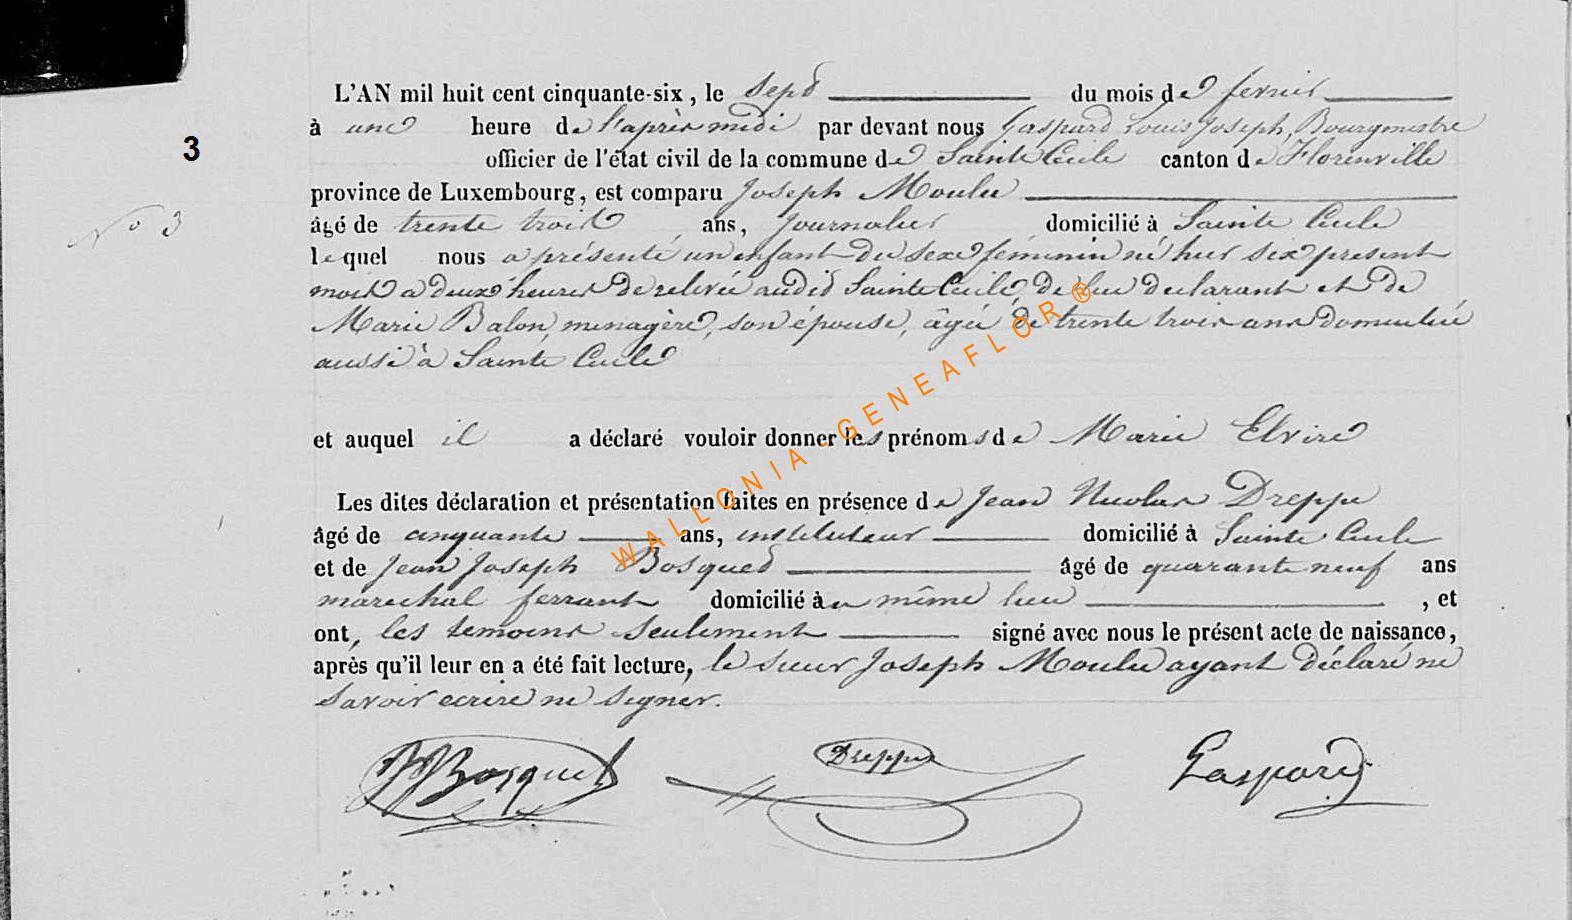 L'AN mil huit cent cinquante-six, le sept du mois de fevrier
à une heure de l'après midi par devant nous Gaspard Louis Joseph, Bourgmestre
3
officier de l'état civil de la commune de Sainte Cecile canton de Florenville
province de Luxembourg, est comparu Joseph Moulu
N° 3
âgé de trente trois ans, journalier domicilié à Sainte Cecile
lequel nous a présenté un enfant du sexe féminin né hier six present
mois a deux heures de relevée audit Sainte Cecile, de lui declarant et de
Marie Balon, menagère, son épouse, âgée de trente trois ans domiciliée
aussi à Sainte Cecile
et auquel il a déclaré vouloir donner les prénoms de Marie Elvire
Les dites déclaration et présentation faites en présence de Jean Nicolas Dreppe
âgé de cinquante ans, instituteur domicilié à Sainte Cecile
et de Jean Joseph Bosquet âgé de quarante neuf ans
marechal ferrant domicilié au même lieu, et
ont, les temoins seulement signé avec nous le présent acte de naissance,
après qu'il leur en a été fait lecture, le sieur Joseph Moulu ayant déclaré ne
savoir ecrire ne signer.
JJBosquet Dreppe Gaspard
WALLONIA-GENEAFLOR®